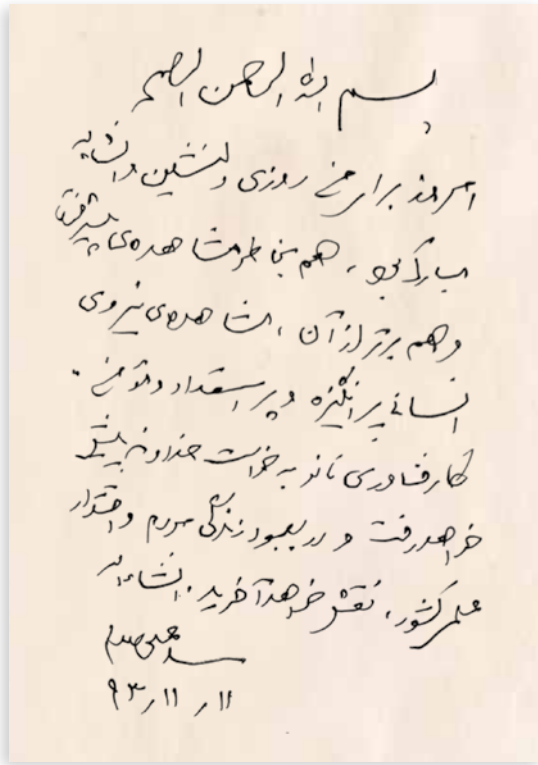 بسم الله الرحمن الرحیم
امروز برای من روزی دلنشین و انشاءالله
مبارک بود، هم بخاطر مشاهده‌ی پیشرفتها
و هم برتر از آن، مشاهده‌ی نیروی
انسانی پرانگیزه و پر استعداد و متوکل.
کار فناوری نانو به خواست خداوند پیش
خواهد رفت و در بهبود زندگی مردم و اقتدار
علمی کشور، نقش خواهد آفرید. انشاءالله
سید علی
۹۳٫۱۱٫۱۱